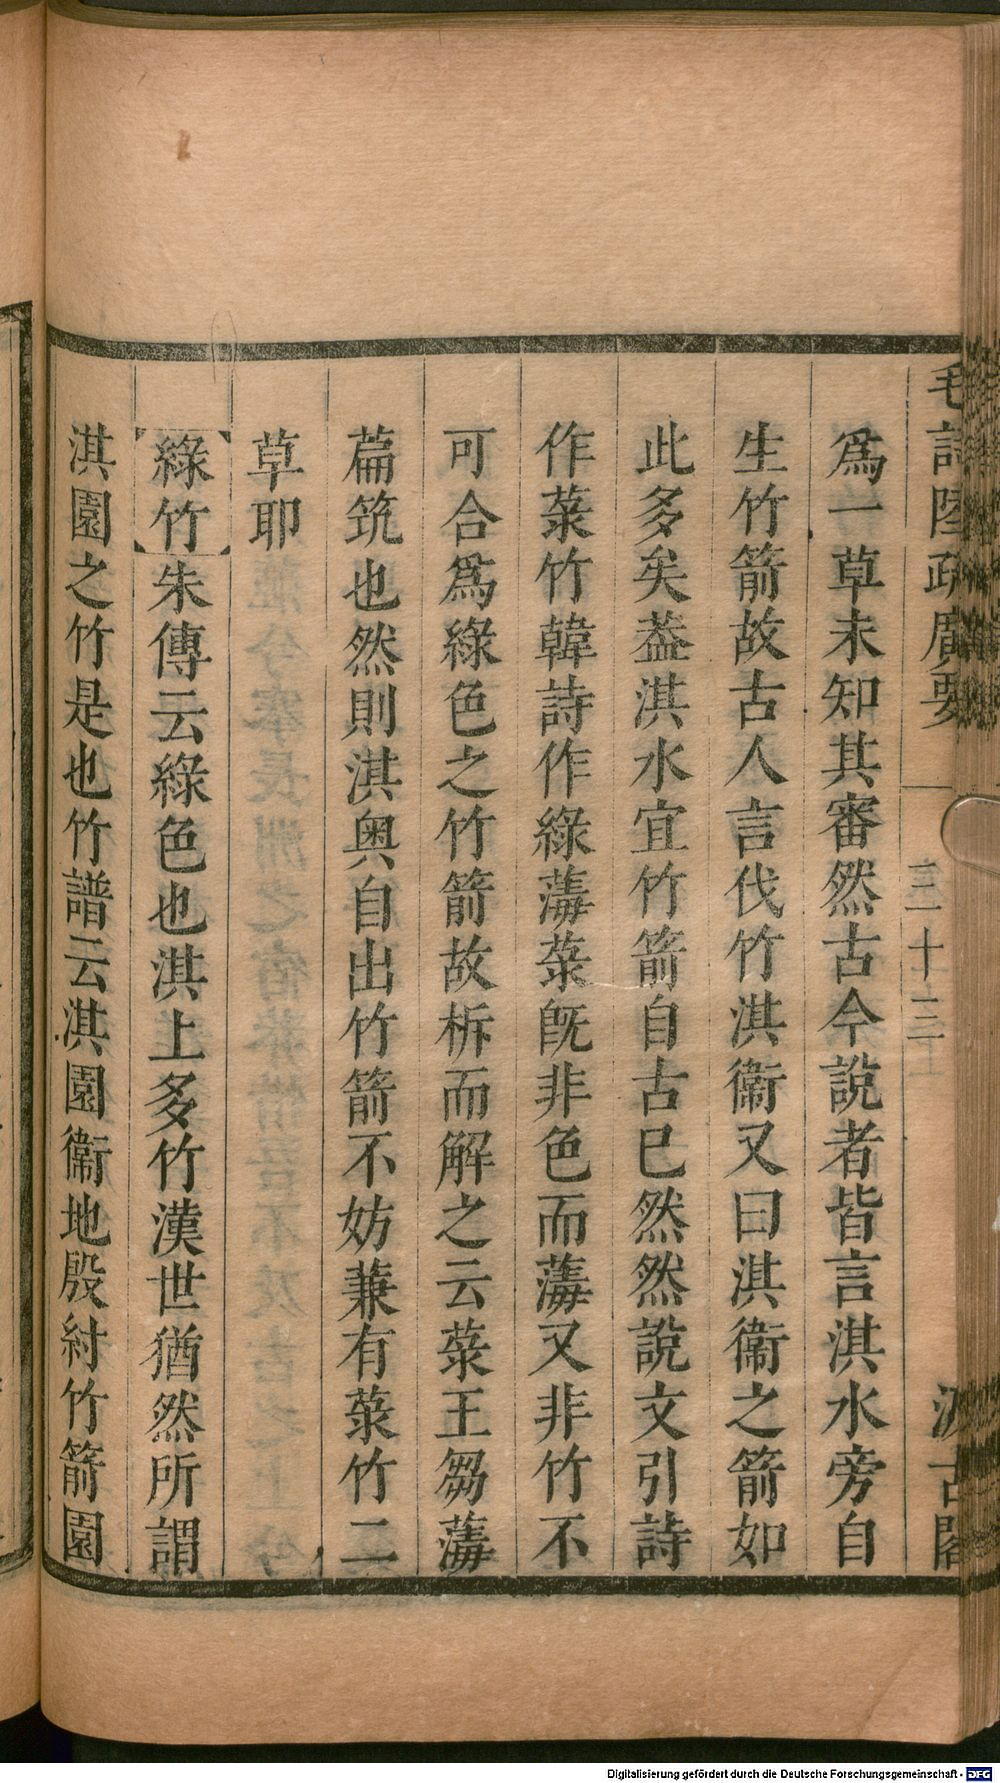 毛詩陸疏廣要
三十三
汲古閣
爲一草未知其審然古今說者皆言淇水旁自
生竹箭故古人言伐竹淇衞又曰淇衞之箭如
此多矣葢淇水宜竹箭自古已然然說文引詩
作菉竹韓詩作綠薄菉旣非色而薄又非竹不
可合爲綠色之竹箭故柝而解之云菉王芻薄
萹筑也然則淇奥自出竹箭不妨兼有菉竹二
草耶
綠竹朱傳云綠色也淇上多竹漢世猶然所謂
淇園之竹是也竹譜云淇園衞地殷紂竹箭園
Digitalisierung gefördert durch die Deutsche Forschungsgemeinschaft - DFG